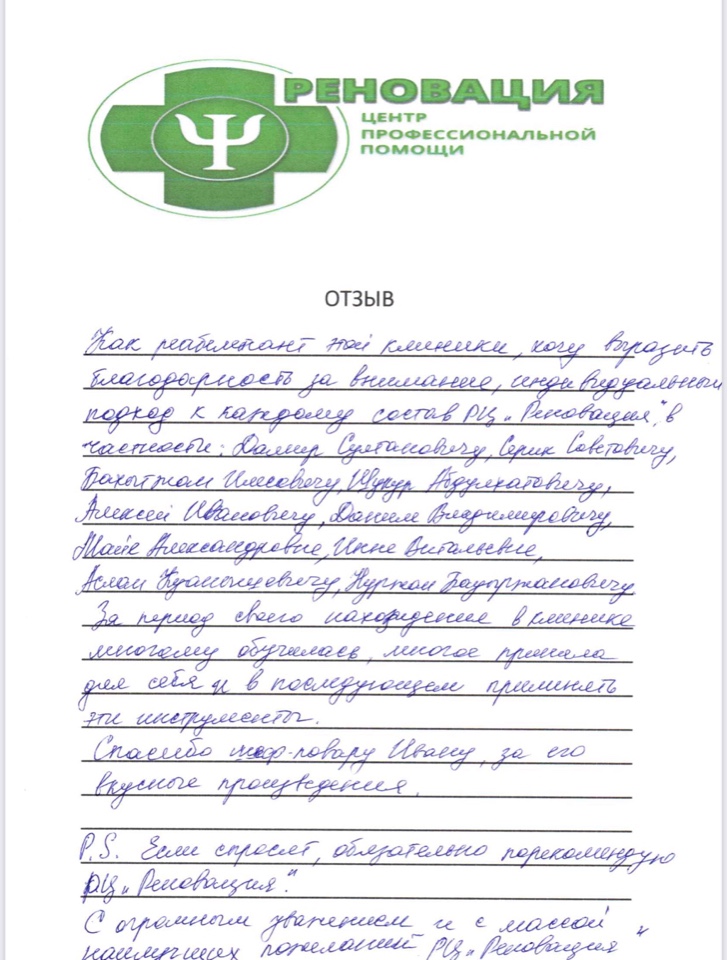 РЕНОВАЦИЯ
ЦЕНТР
ПРОФЕССИОНАЛЬНОЙ
ПОМОЩИ
ОТЗЫВ
Как реабилитант этой клиники, хочу выразить
благодарность за внимание, индивидуальный
подход к каждому состав РЦ „Реновация", в
частности: Дамир Султановичу, Серик Советовичу,
Бахытжан Илисовичу, Шукур Абдулхатовичу,
Алексей Ивановичу, Данил Владимировичу,
Майе Александровне, Инне Витальевне,
Аслан Куанышевичу, Нуржан Бауыржановичу
За период своего нахождения в клинике
многому обучилась, многое приняла
для себя и в последующем применять
эти инструменты.
Спасибо шеф-повару Ивану, за его
вкусные произведения.
P.S. Если спросят, обязательно порекомендую
РЦ „Реновация".
С огромным уважением и с массой
наилучших пожеланий РЦ „Реновация"